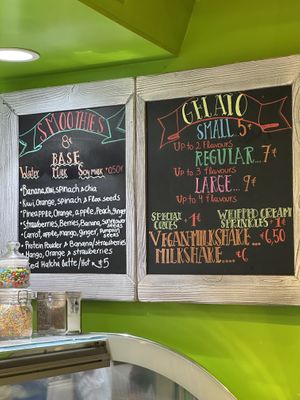 SMOOTHIES
8€
BASE
Water Milk Soy milk +0.50€
• Banana, Kiwi, Spinach & chia
• Kiwi, Orange, Spinach & Flax seeds
• Pineapple, Orange, apple, Peach, Ginger
• Strawberries, Berries, Banana, Sunflower seeds
• Carrot, apple, mango, ginger, Pumpkin seeds
• Protein Powder & Banana/strawberries
• Mango, Orange & strawberries
Iced Matcha Latte/Hot €5
GELATO
SMALL 5€
Up to 2 flavours
REGULAR...7€
Up to 3 flavours
LARGE...9€
Up to 4 flavours
SPECIAL CONES +1€
WHIPPED CREAM SPRINKLES +1€
VEGAN MILKSHAKE... €6,50
MILKSHAKE.... €6